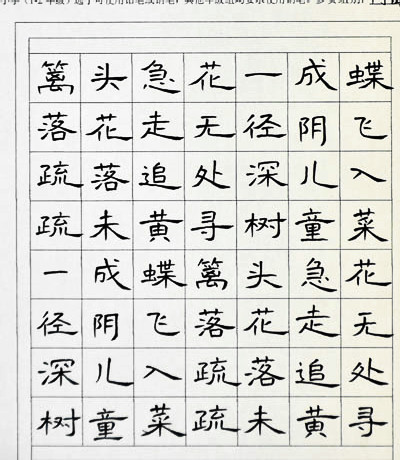 年级）选手可使用铅笔或钢笔，其他年级组均要求使用钢笔。参赛组别：
篱落疏疏一径深树
头花落未成阴儿童
急走追黄蝶飞入菜
花无处寻篱落疏疏
一径深树头花落未
成阴儿童急走追黄
蝶飞入菜花无处寻